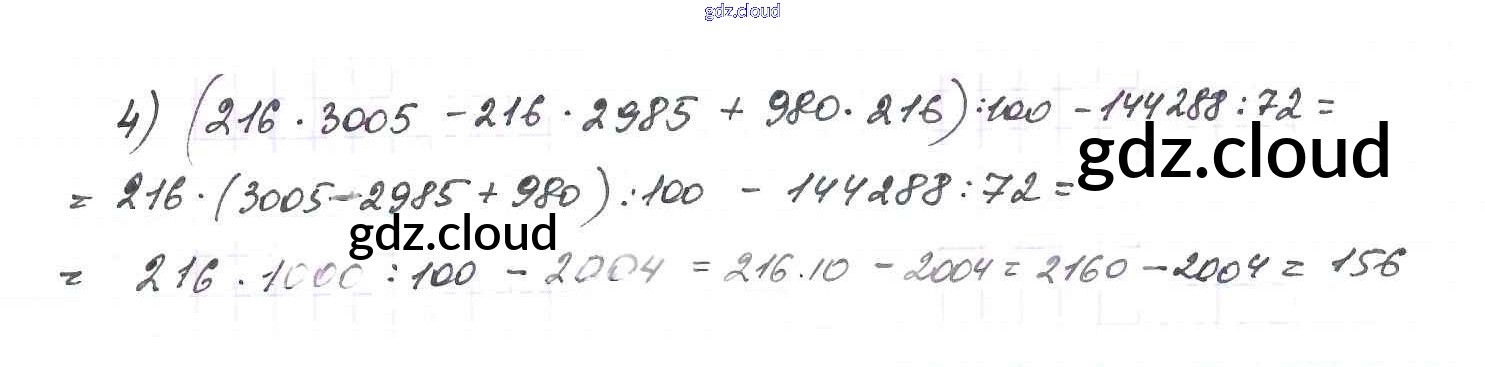 gdz.cloud
4) (216 · 3005 - 216 · 2985 + 980 · 216) : 100 - 144288 : 72 =
gdz.cloud
= 216 · (3005 - 2985 + 980) : 100 - 144288 : 72 =
gdz.cloud
= 216 · 1000 : 100 - 2004 = 216 · 10 - 2004 = 2160 - 2004 = 156